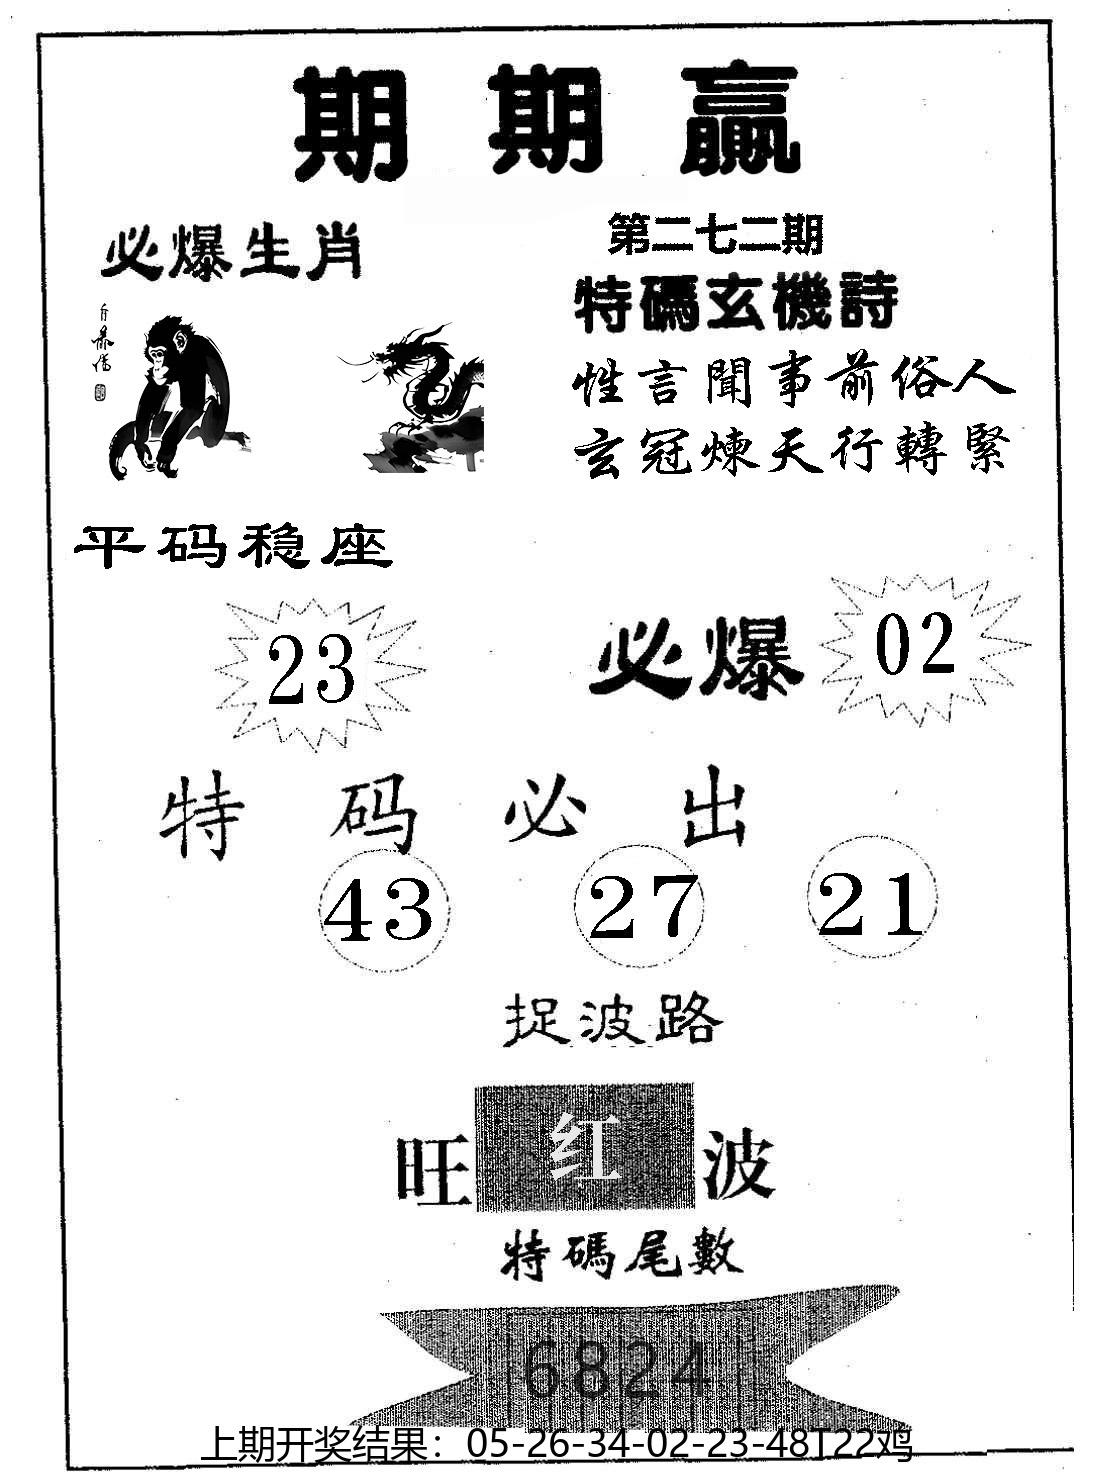 期期贏
必爆生肖
第二七二期
特碼玄機詩
性言聞事前俗人
玄冠煉天行轉緊
平码稳座
23
必爆
02
特码必出
43 27 21
捉波路
旺红波
特碼尾數
6824
上期开奖结果：05-26-34-02-23-48T22鸡